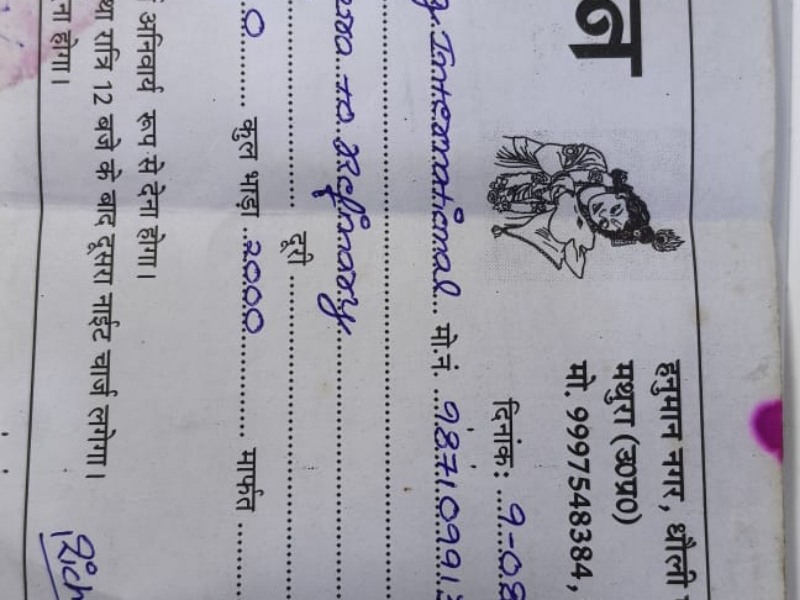 न
हनुमान नगर, धौली
मथुरा (उ०प्र०)
मो. 9997548384,
दिनांक: 9-08
International मो.नं. 987109913
to refinary
दूरी
0 कुल भाड़ा 2000 मार्फत
अनिवार्य रूप से देना होगा।
रात्रि 12 बजे के बाद दूसरा नाईट चार्ज लगेगा।
होगा।